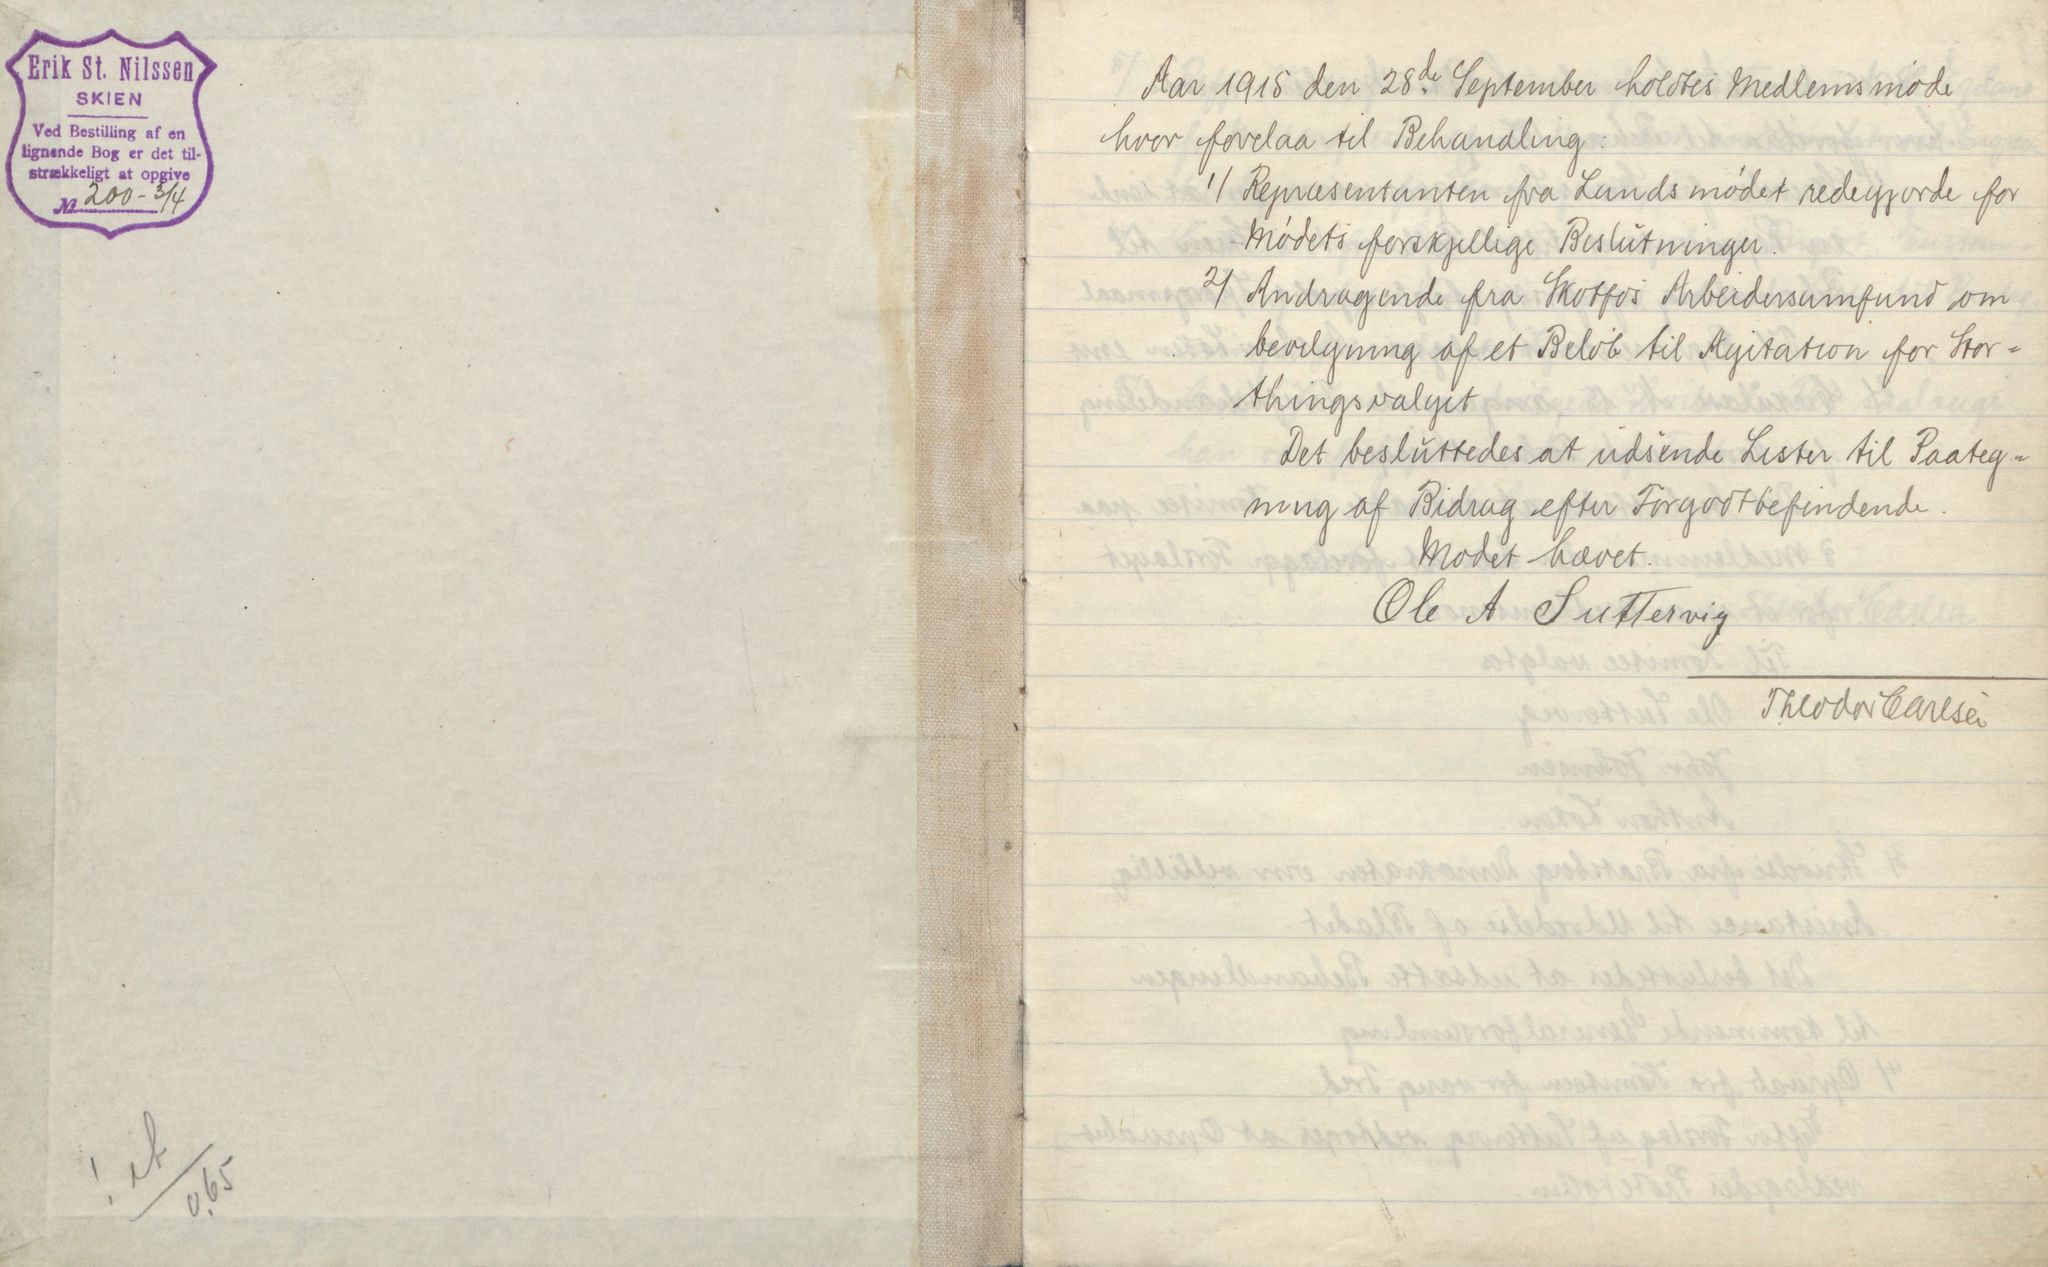 Erik St. Nilssen
SKIEN
Ved Bestilling af en
lignende Bog er det til-
strækkeligt at opgive
№ 200 - 3/4
Aar 1915 den 28de September holdtes Medlemsmøde
hvor forelaa til Behandling:
1/ Repræsentanten fra Landsmødet redegjorde for
Mødets forskjellige Beslutninger.
2/ Andragende fra Skotfos Arbeidersamfund om
bevilgning af et Beløb til Agitation for Stor=
thingsvalget
Det besluttedes at udsende Lister til Paateg=
ning af Bidrag efter Forgodtbefindende.
Mødet hævet.
Ole A Suttervig
Theodor Carlsen
0.65